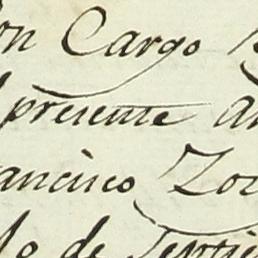 on Cargo
presente
ancisco Zo
de Septie